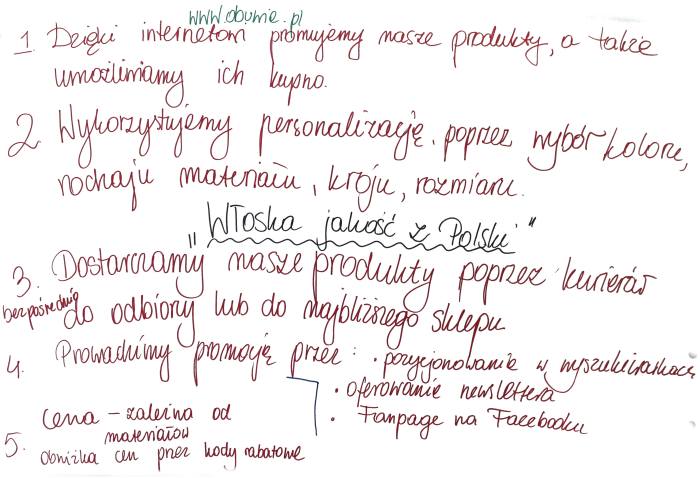 www.obunie.pl
1. Dzięki internetom promujemy nasze produkty, a także
umożliwiamy ich kupno.
2. Wykorzystujemy personalizację poprzez wybór koloru,
rodzaju materiału, kroju, rozmiaru.
"Włoska jakość z Polski"
3. Dostarczamy nasze produkty poprzez kurierów
bezpośrednio do odbiory lub do najbliższego sklepu
4. Prowadzimy promocję przez: • pozycjonowanie w wyszukiwarkach
• oferowanie newslettera
• Fanpage na Facebooku
5. Cena – zależna od
materiałów
obniżka cen przez kody rabatowe